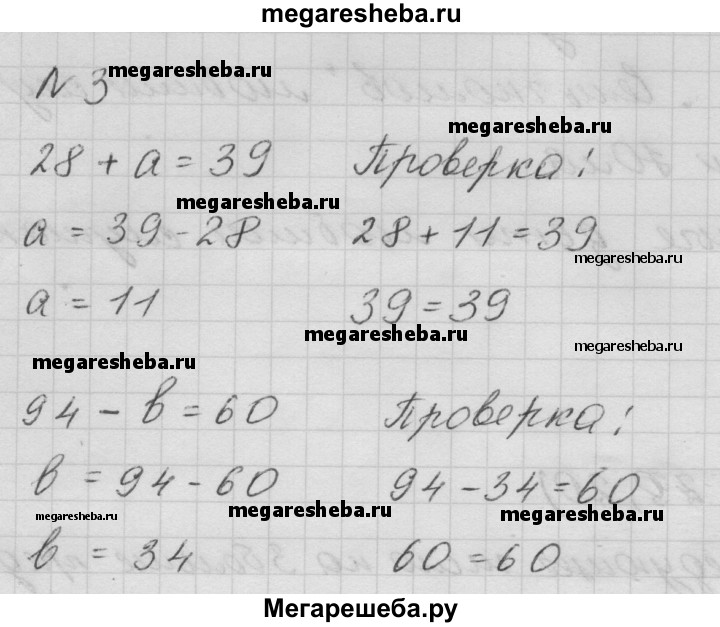 megaresheba.ru
№ 3 megaresheba.ru
megaresheba.ru
28 + a = 39 Проверка:
megaresheba.ru
a = 39 - 28 28 + 11 = 39
megaresheba.ru
a = 11 39 = 39
megaresheba.ru
megaresheba.ru
megaresheba.ru
94 - в = 60 Проверка:
в = 94 - 60 94 - 34 = 60
megaresheba.ru
megaresheba.ru
megaresheba.ru
в = 34 60 = 60
Мегарешеба.ру